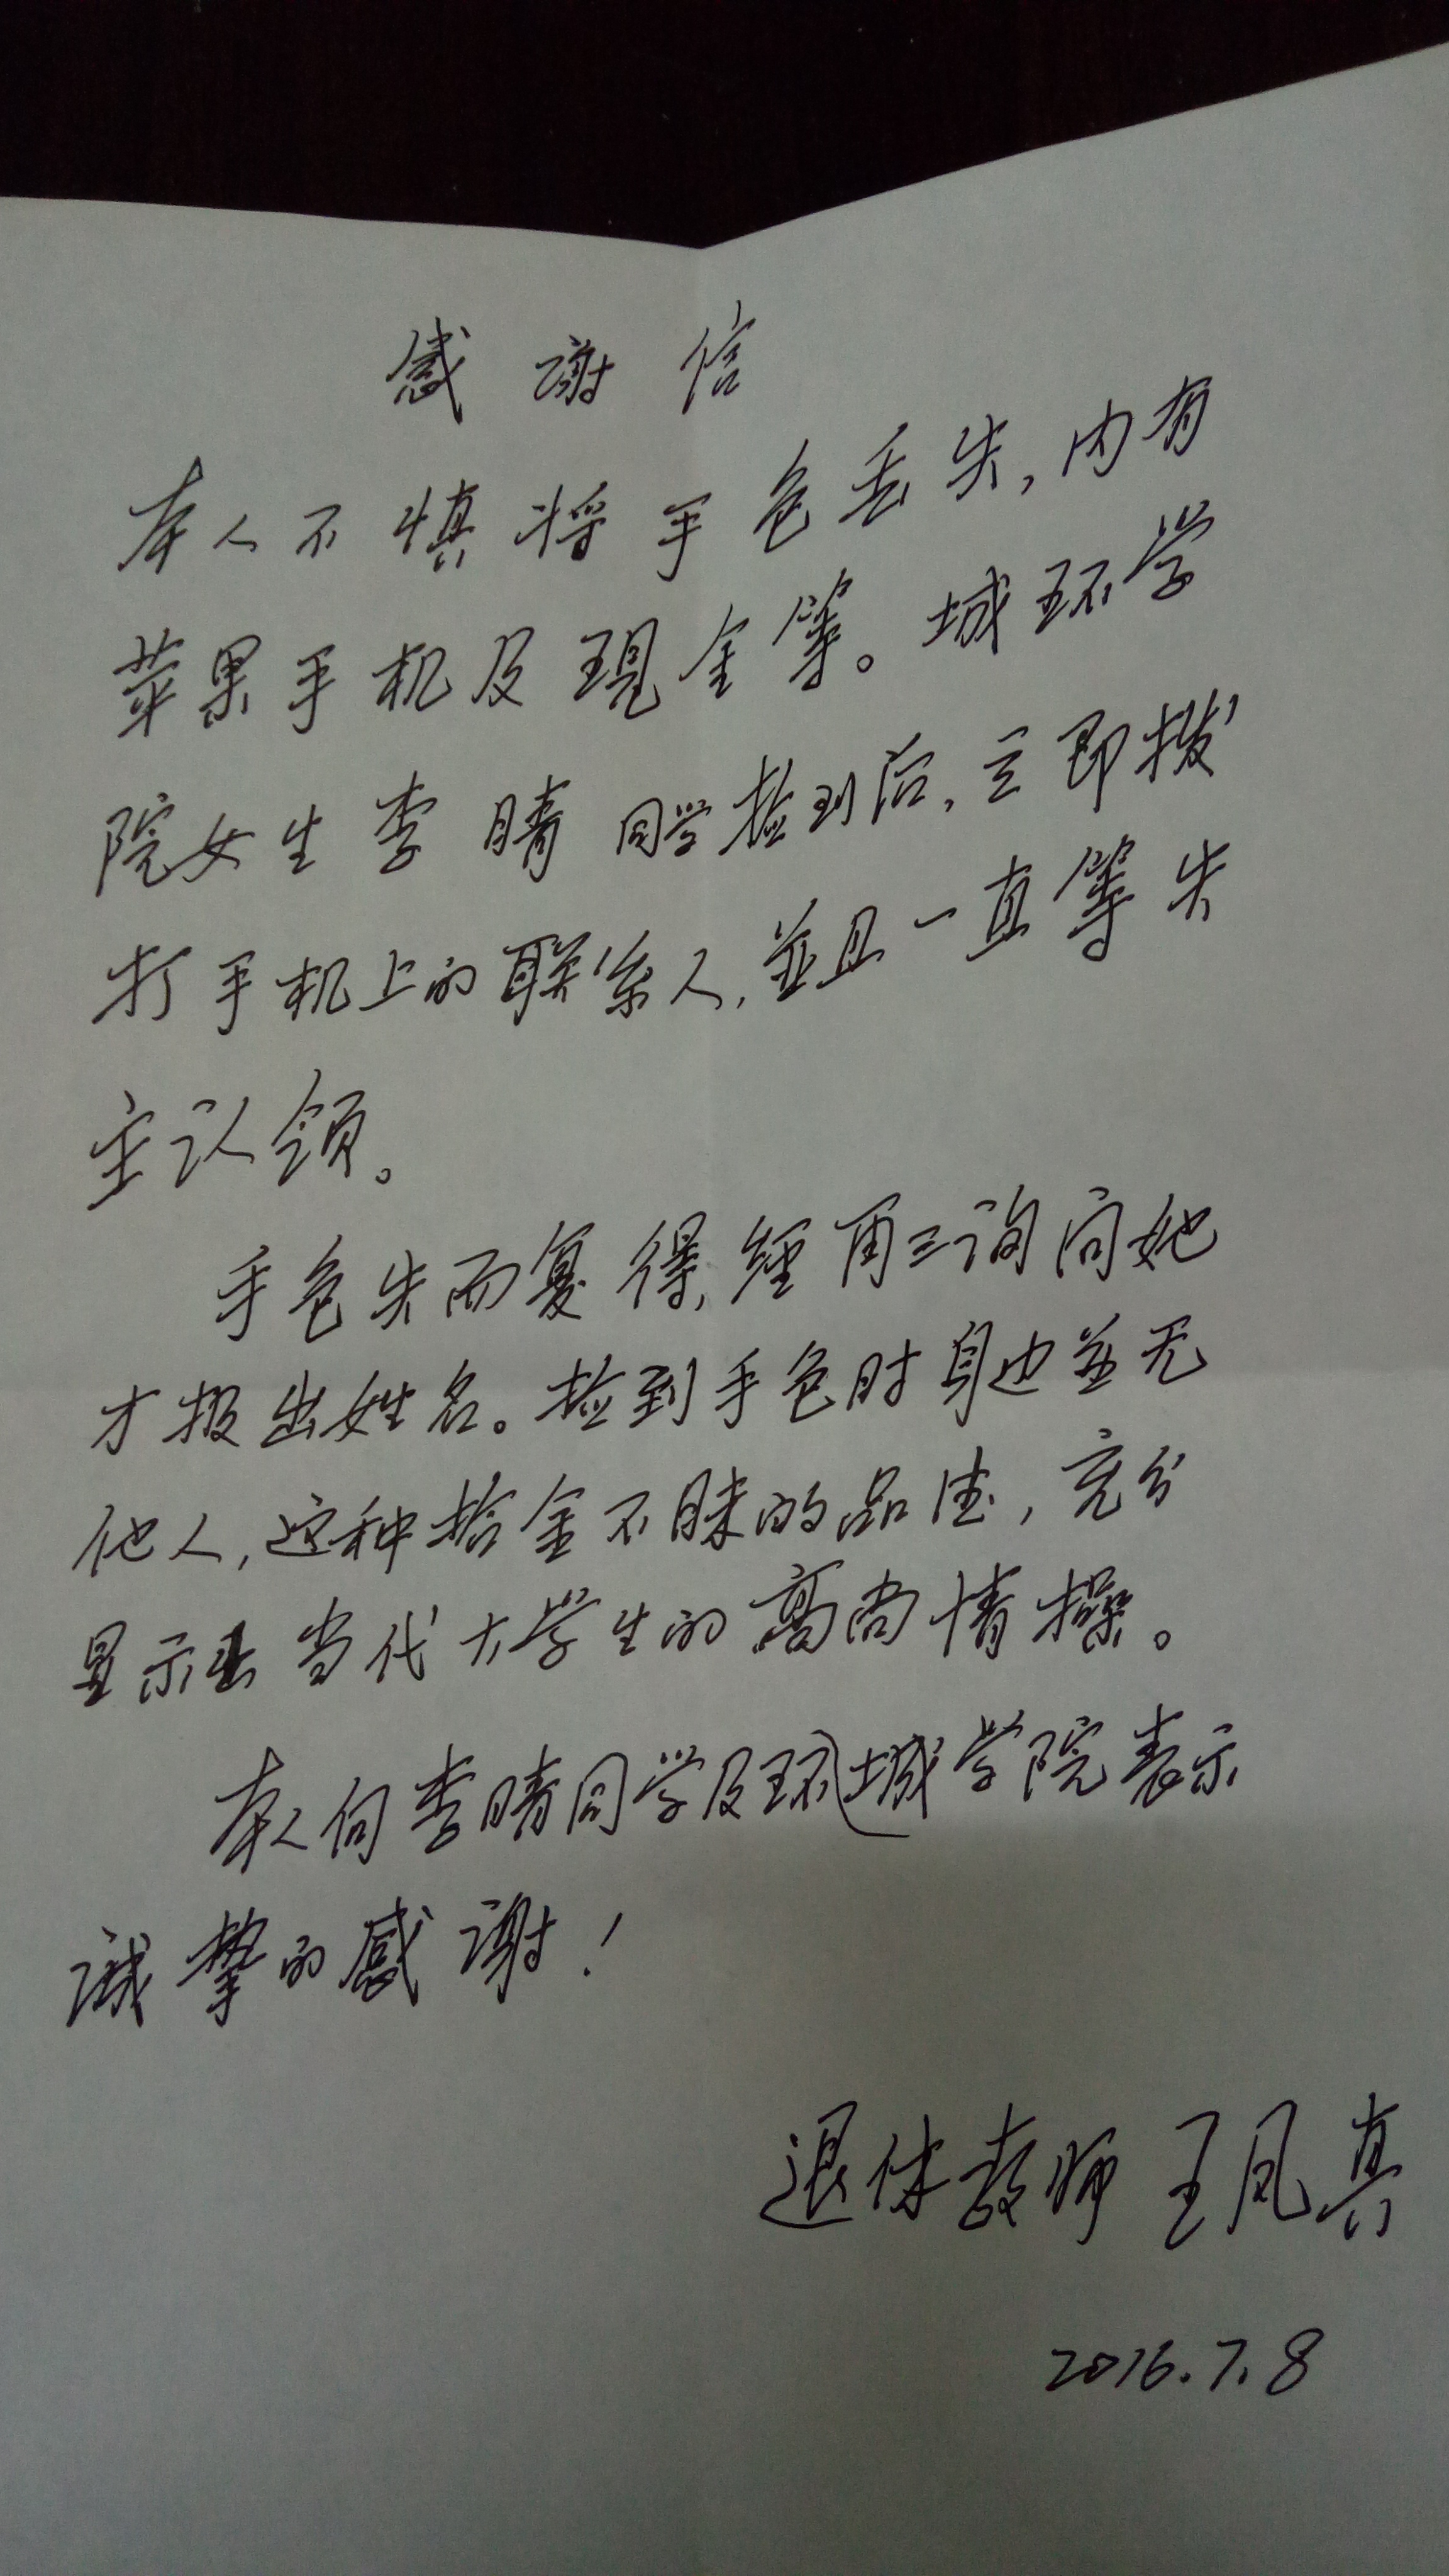 感谢信
本人不慎将手包丢失,内有
苹果手机及现金等。城环学
院女生李晴同学捡到后,立即拨
打手机上的联系人,並且一直等失
主认领。
手包失而复得,经再三询问她
才报出姓名。捡到手包时身边並无
他人,这种拾金不昧的品德,充分
显示出当代大学生的高尚情操。
本人向李晴同学及环城学院表示
诚挚的感谢!
退休教师 王凤真
2016.7.8